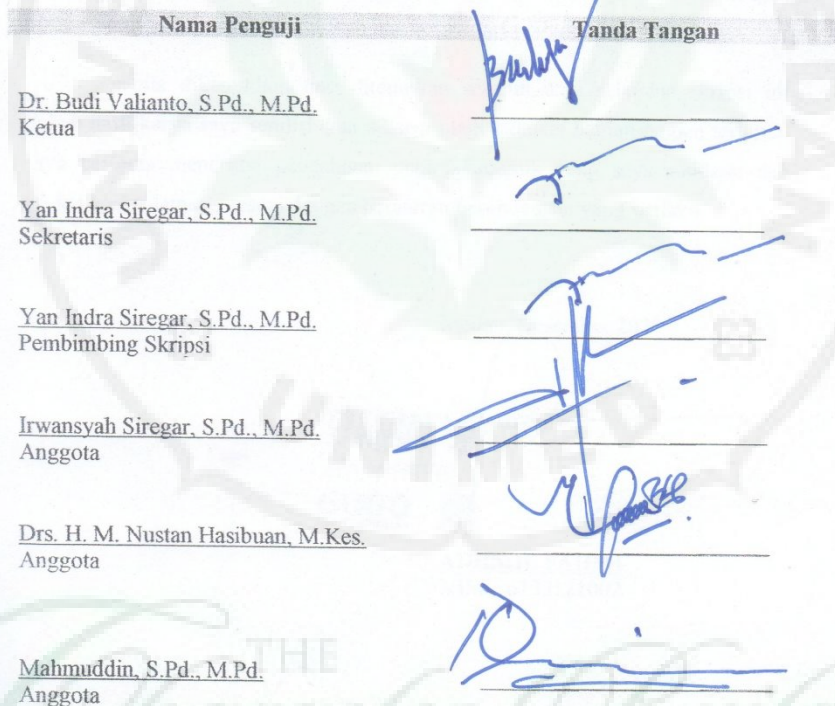 Nama Penguji Tanda Tangan
Dr. Budi Valianto, S.Pd., M.Pd.
Ketua
Yan Indra Siregar, S.Pd., M.Pd.
Sekretaris
Yan Indra Siregar, S.Pd., M.Pd.
Pembimbing Skripsi
Irwansyah Siregar, S.Pd., M.Pd.
Anggota
UNIMED
Drs. H. M. Nustan Hasibuan, M.Kes.
Anggota
THE
Mahmuddin, S.Pd., M.Pd.
Anggota